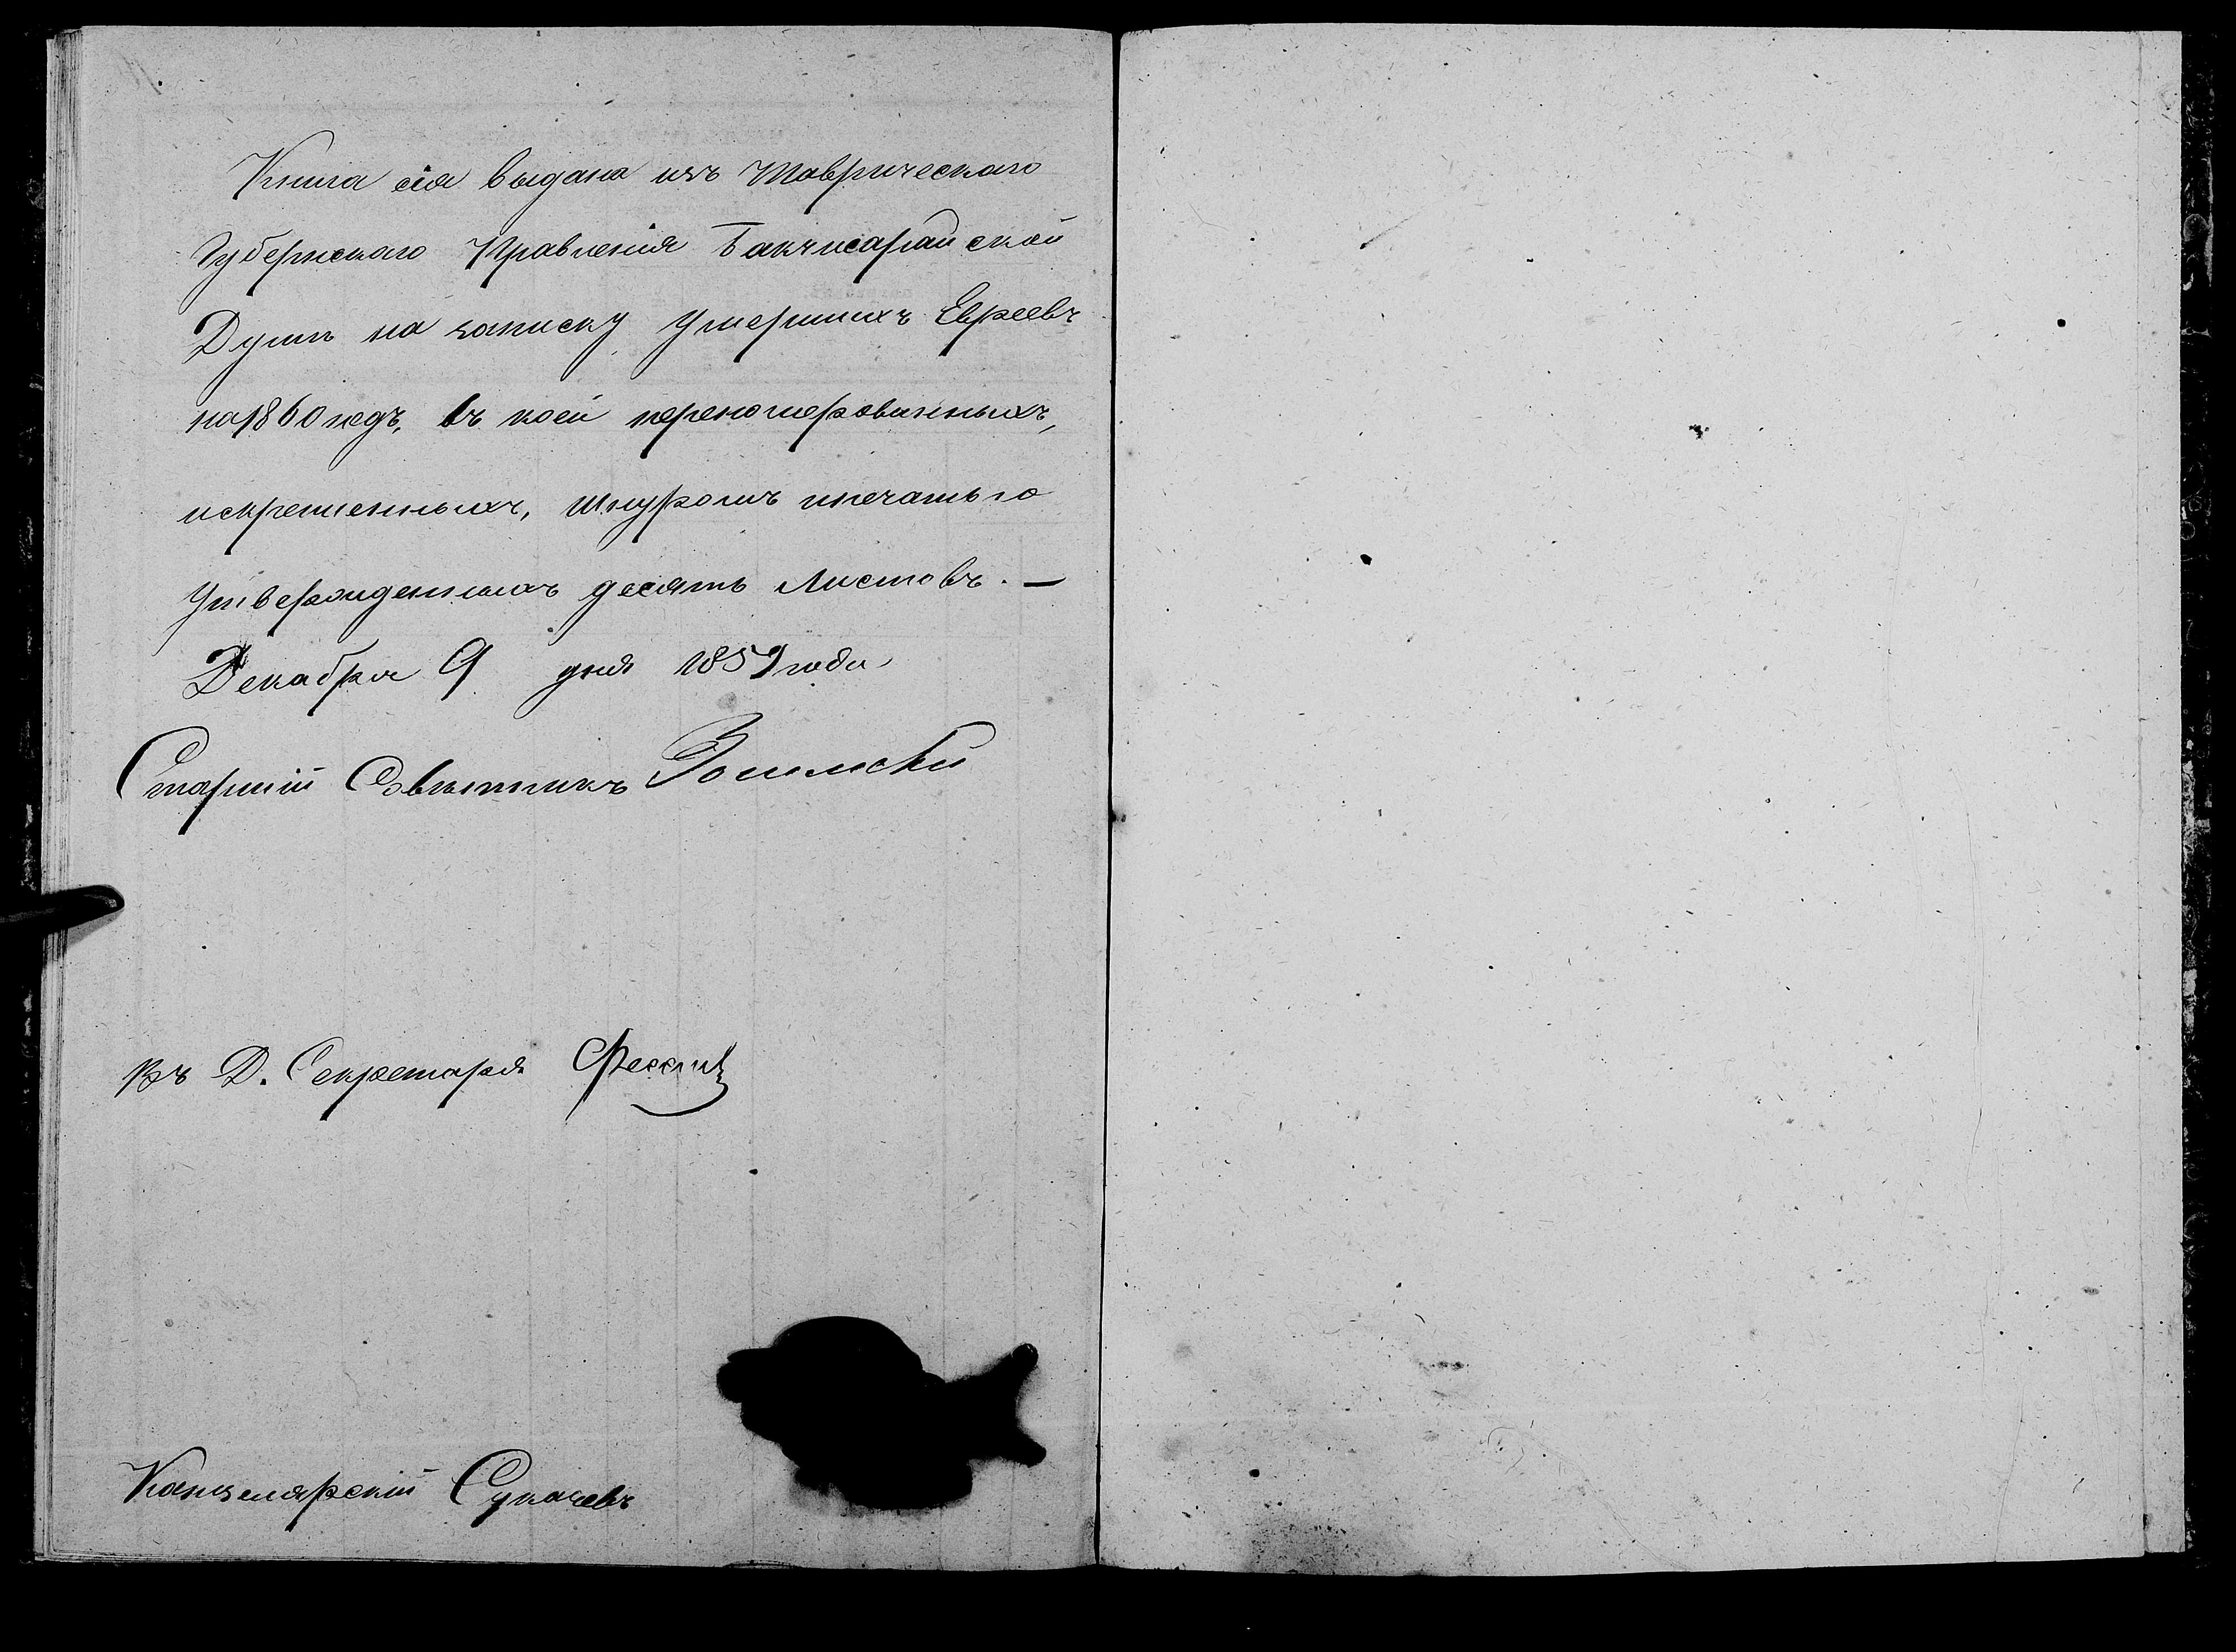 Книга сія выдана изъ Таврическаго
Губернскаго Правленія Бакчисарайской
Думѣ на записку умершихъ Евреевъ
на 1860 годъ, въ коей перенумерованныхъ,
искрепленныхъ, шнуромъ ипечатью
утвержденныхъ десять листовъ. —
Декабря 9 дня 1859 года
Старшій Совѣтникъ
Д. Секретаря
Канцелярскій Сукачевъ